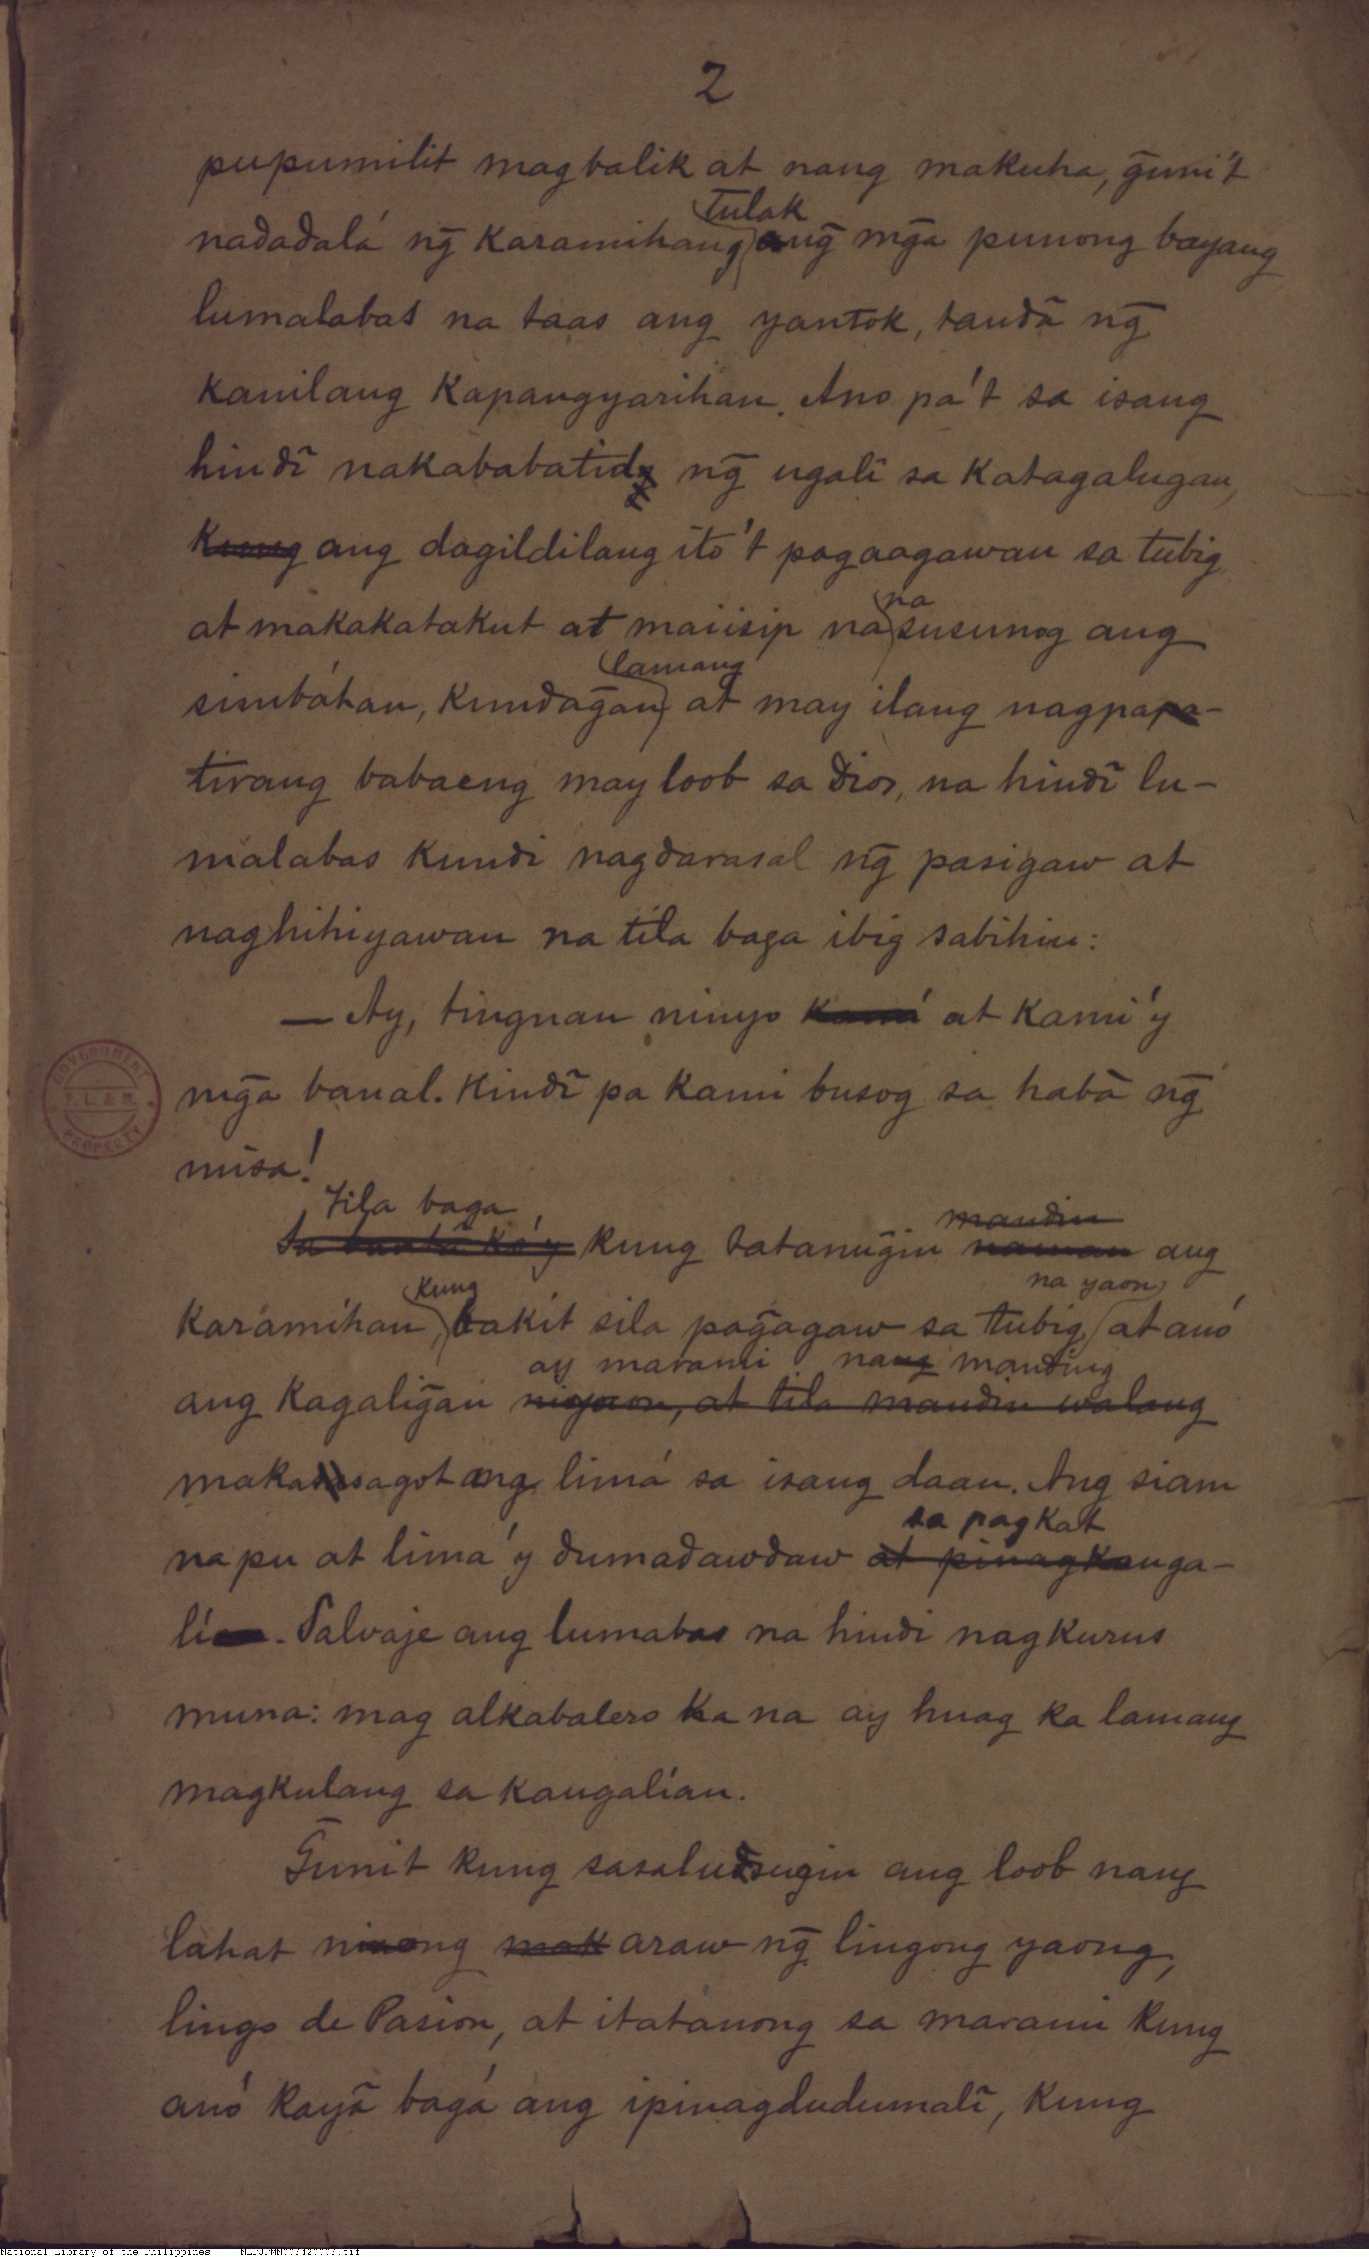 2
pupumilit magbalik at nang makuha, g̃uni't
tulak
nadadalá ng̃ karamihang ang̃ mg̃a punong bayang
lumalabas na taas ang yantok, tandã ng̃
kanilang kapangyarihan. Ano pa't sa isang
hindĩ nakababatid ng̃ ugalĩ sa katagalugan,
kung ang dagildilang ito't pagaagawan sa tubig
na
at makakatakut at maiisip na susunog ang
lamang
simbáhan, kundag̃an at may ilang nagpapa-
tirang babaeng may loob sa Dios, na hindĩ lu-
malabas kundi nagdarasal ng̃ pasigaw at
naghihiyawan na tila baga ibig sabihin:
— Ay, tingnan ninyo kamí at kami'y
mg̃a banal. Hindĩ pa kami busog sa habã ng̃
misa!
tila baga
Sa banta ko'y kung tatanung̃in naman ang
mandin
na yaon
kung
karamihan bakit sila pag̃agaw sa tubig at anó
ay marami nang manding
ang kagalig̃an niyaon, at tila mandin walang
makasasagot ang limá sa isang daan. Ang siam
sa pagkat
na pu at lima'y dumadawdaw at pinagkauga-
lí. Salvaje ang lumabas na hindi nagkurus
muna: mag alkabalero ka na ay huag ka lamang
magkulang sa kaugalían.
G̃unit kung sasaludsugin ang loob nang
lahat ng araw ng̃ lingong yaong,
lingo de Pasion, at itatanong sa marami kung
anó kayã bagá ang ipinagdudumalĩ, kung
GOVERNMENT
P. L. & M.
PROPERTY
National Library of the Philippines